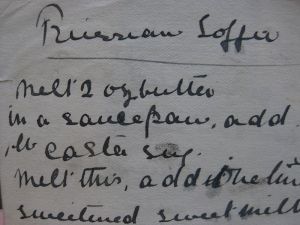 Russian Toffee
Melt 2 oz butter
in a saucepan, add
1 lb caster sug.
Melt this, add the tin
sweetened sweet milk